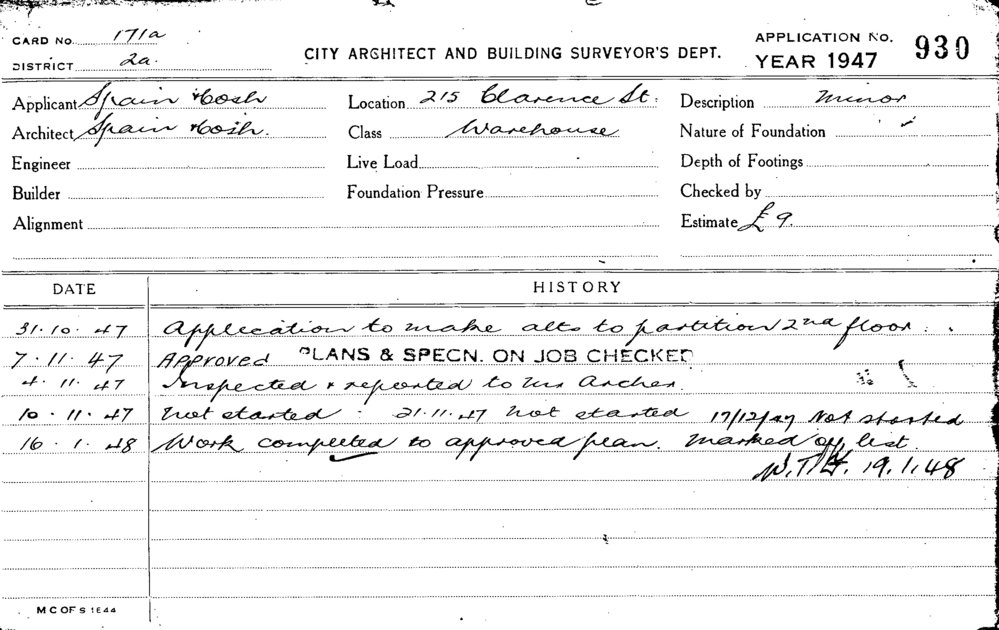 CARD No. 171a
DISTRICT 2a.
CITY ARCHITECT AND BUILDING SURVEYOR'S DEPT.
APPLICATION No. 930
YEAR 1947
Applicant Spain & Cosh Location 215 Clarence St. Description Minor
Architect Spain & Cosh. Class Warehouse Nature of Foundation
Engineer Live Load Depth of Footings
Builder Foundation Pressure Checked by
Alignment Estimate £9.
DATE HISTORY
31.10.47 Application to make alts to partition 2nd floor.
7.11.47 Approved PLANS & SPECN. ON JOB CHECKED
4.11.47 Inspected & reported to Mr Archer.
10.11.47 Not started : 21.11.47 Not started 17/12/47 Not started
16.1.48 Work completed to approved plan. Marked off list
19.1.48
M C OF S 1644